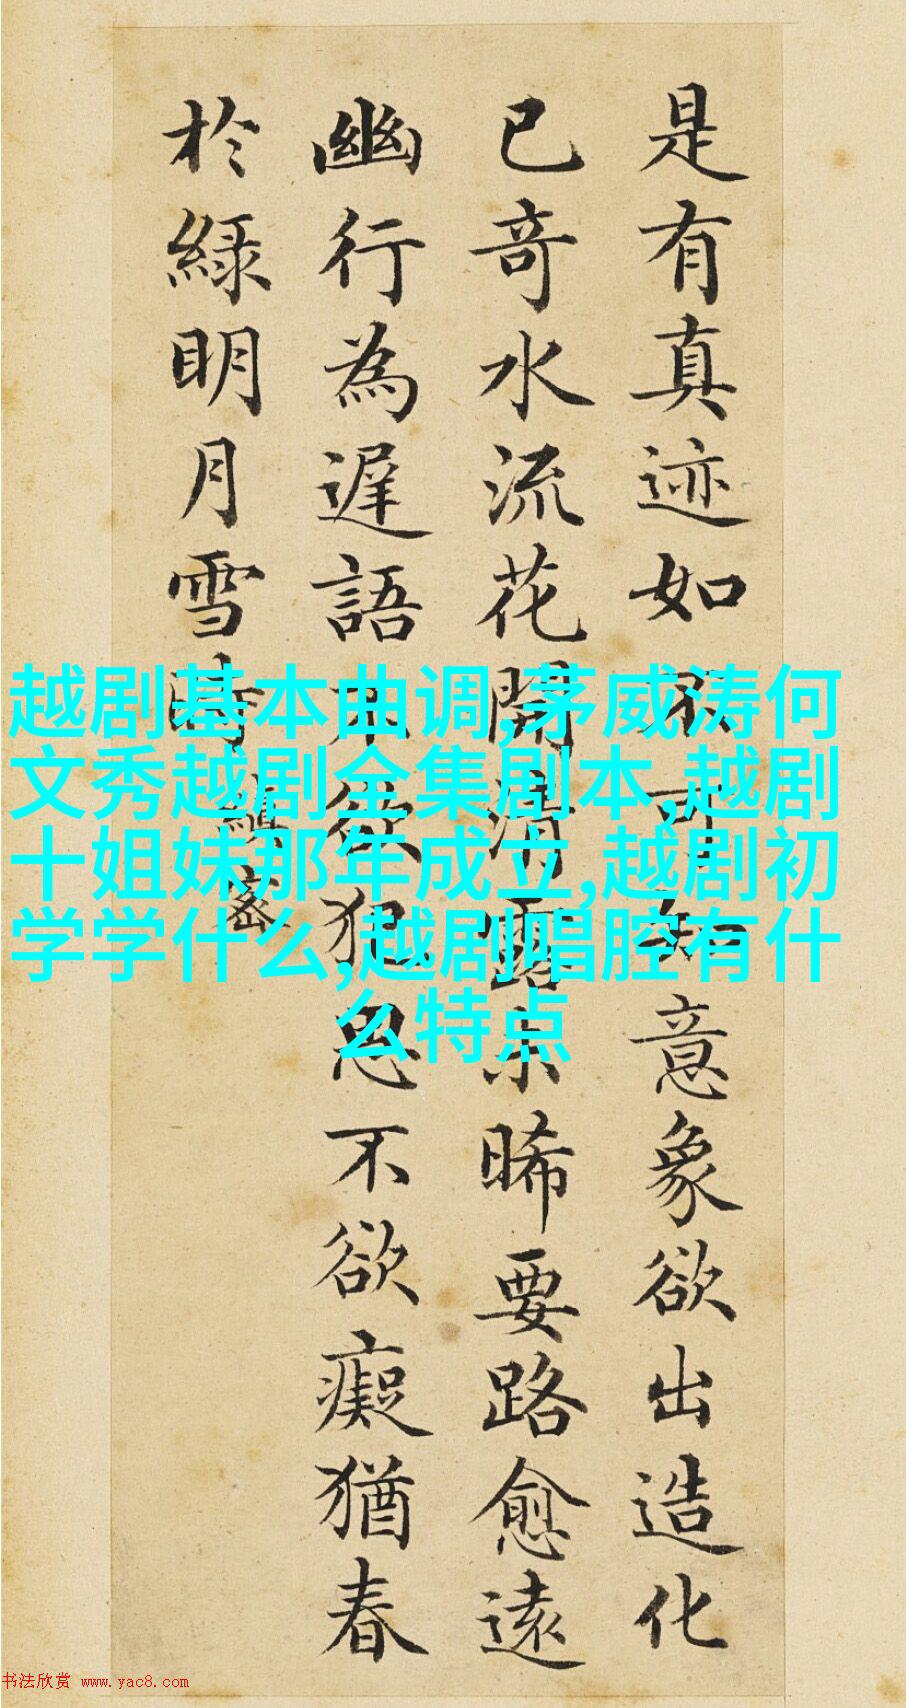 是有真迹如不可知意象欲出造化
已奇水流花開清露未晞要路愈遠
幽行為遲語不欲犯思不欲癡猶春
於綠明月雪時
縝密
越剧基本曲调,茅威涛何
文秀越剧全集剧本,越剧
十姐妹那年成立,越剧初
学学什么,越剧唱腔有什
么特点
书法欣赏 www.yac8.com